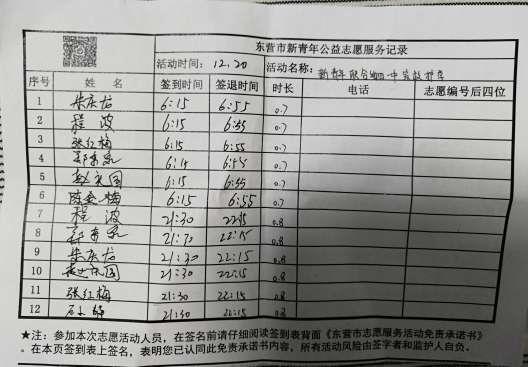 东营市新青年公益志愿服务记录
活动时间: 12.20 活动名称: 新青年联合
序号 姓名 签到时间 签退时间 时长 电话 志愿编号后四位
1 6:15 6:55 0.7
2 程波 6:15 6:55 0.7
3 张红梅 6:15 6:55 0.7
4 6:15 6:55 0.7
5 6:15 6:55 0.7
6 6:15 6:55 0.7
7 程波 21:30 22:15 0.8
8 21:30 22:15 0.8
9 21:30 22:15 0.8
10 21:30 22:15 0.8
11 张红梅 21:30 22:15 0.8
12 21:30 22:15 0.8
★注: 参加本次志愿活动人员, 在签名前请仔细阅读签到表背面《东营市志愿服务活动免责承诺书》
. 在本页签到表上签名, 表明您已认同此免责承诺书内容, 所有活动风险由签字者和监护人自负.